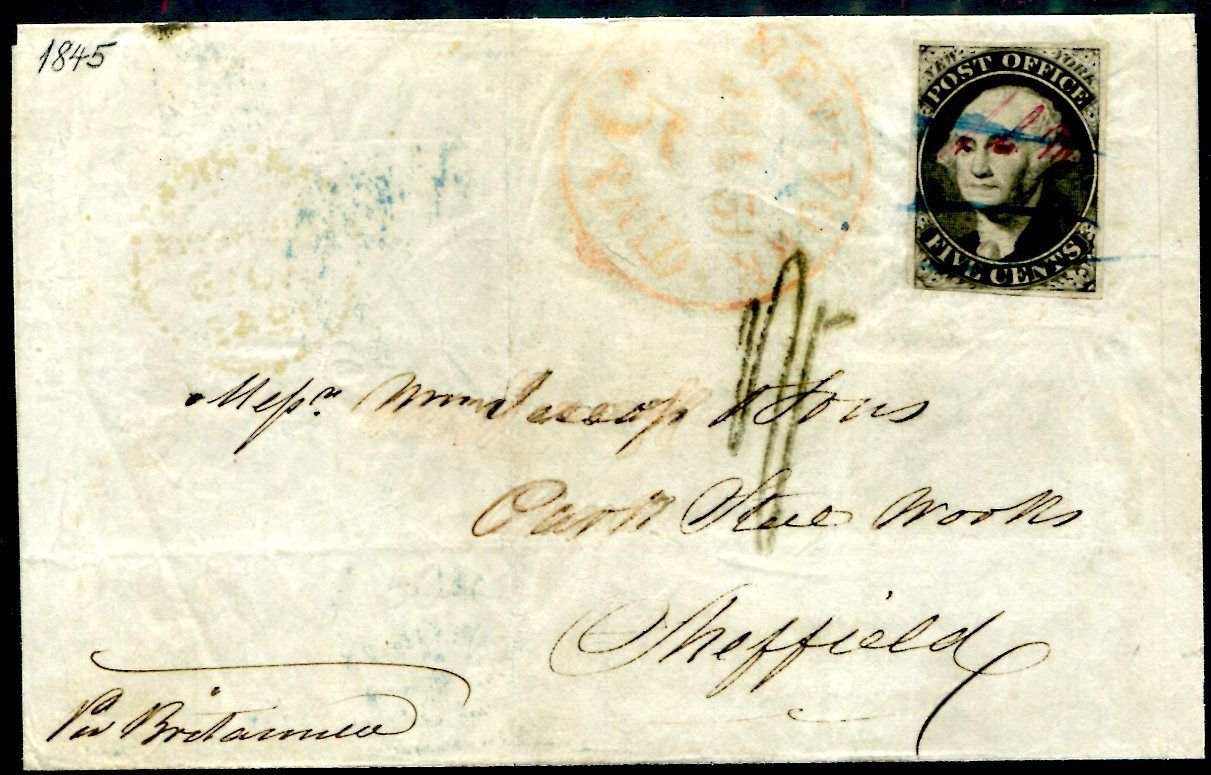 1845
NEW-YORK
JUL 15
5
PAID
NEW YORK
POST OFFICE
FIVE CENTS
Messrs Wm Jessop & Sons
Park Steel Works
Sheffield
Per Britannia